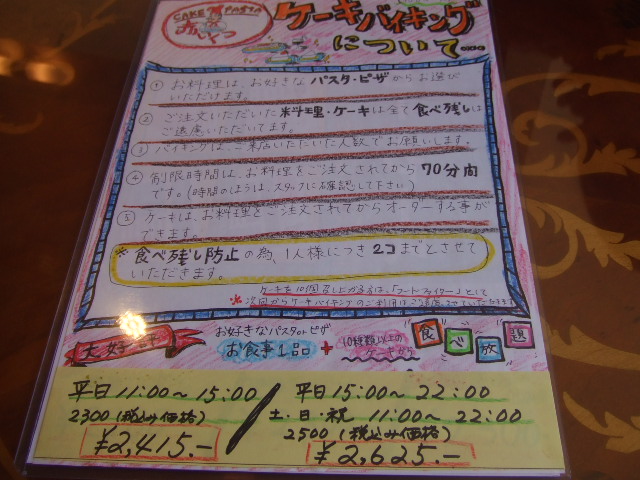 CAKE PASTA
おいてつ
ケーキバイキング
について…
① お料理は、お好きなパスタ・ピザからお選び
いただけます。
② ご注文いただいた料理・ケーキは全て食べ残しは
ご遠慮いただいてます。
③ バイキングは、ご来店いただいた人数でお願いします。
④ 制限時間は、お料理をご注文されてから70分間
です。(時間のほうは、スタッフに確認して下さい)
⑤ ケーキは、お料理をご注文されてからオーダーする事が
できます。
※食べ残し防止の為、1人様につき2コまでとさせて
いただきます。
ケーキを10個召し上がる方は、「フードファイター」として
※次回からケーキバイキングのご利用はご遠慮させていただきます
大好評
お好きなパスタorピザ
お食事1品
+
10種類以上の
ケーキから
食べ放題
平日 11:00~15:00
2300(税込み価格)
¥2,415.-
平日 15:00~22:00
土・日・祝 11:00~22:00
2500(税込み価格)
¥2,625.-